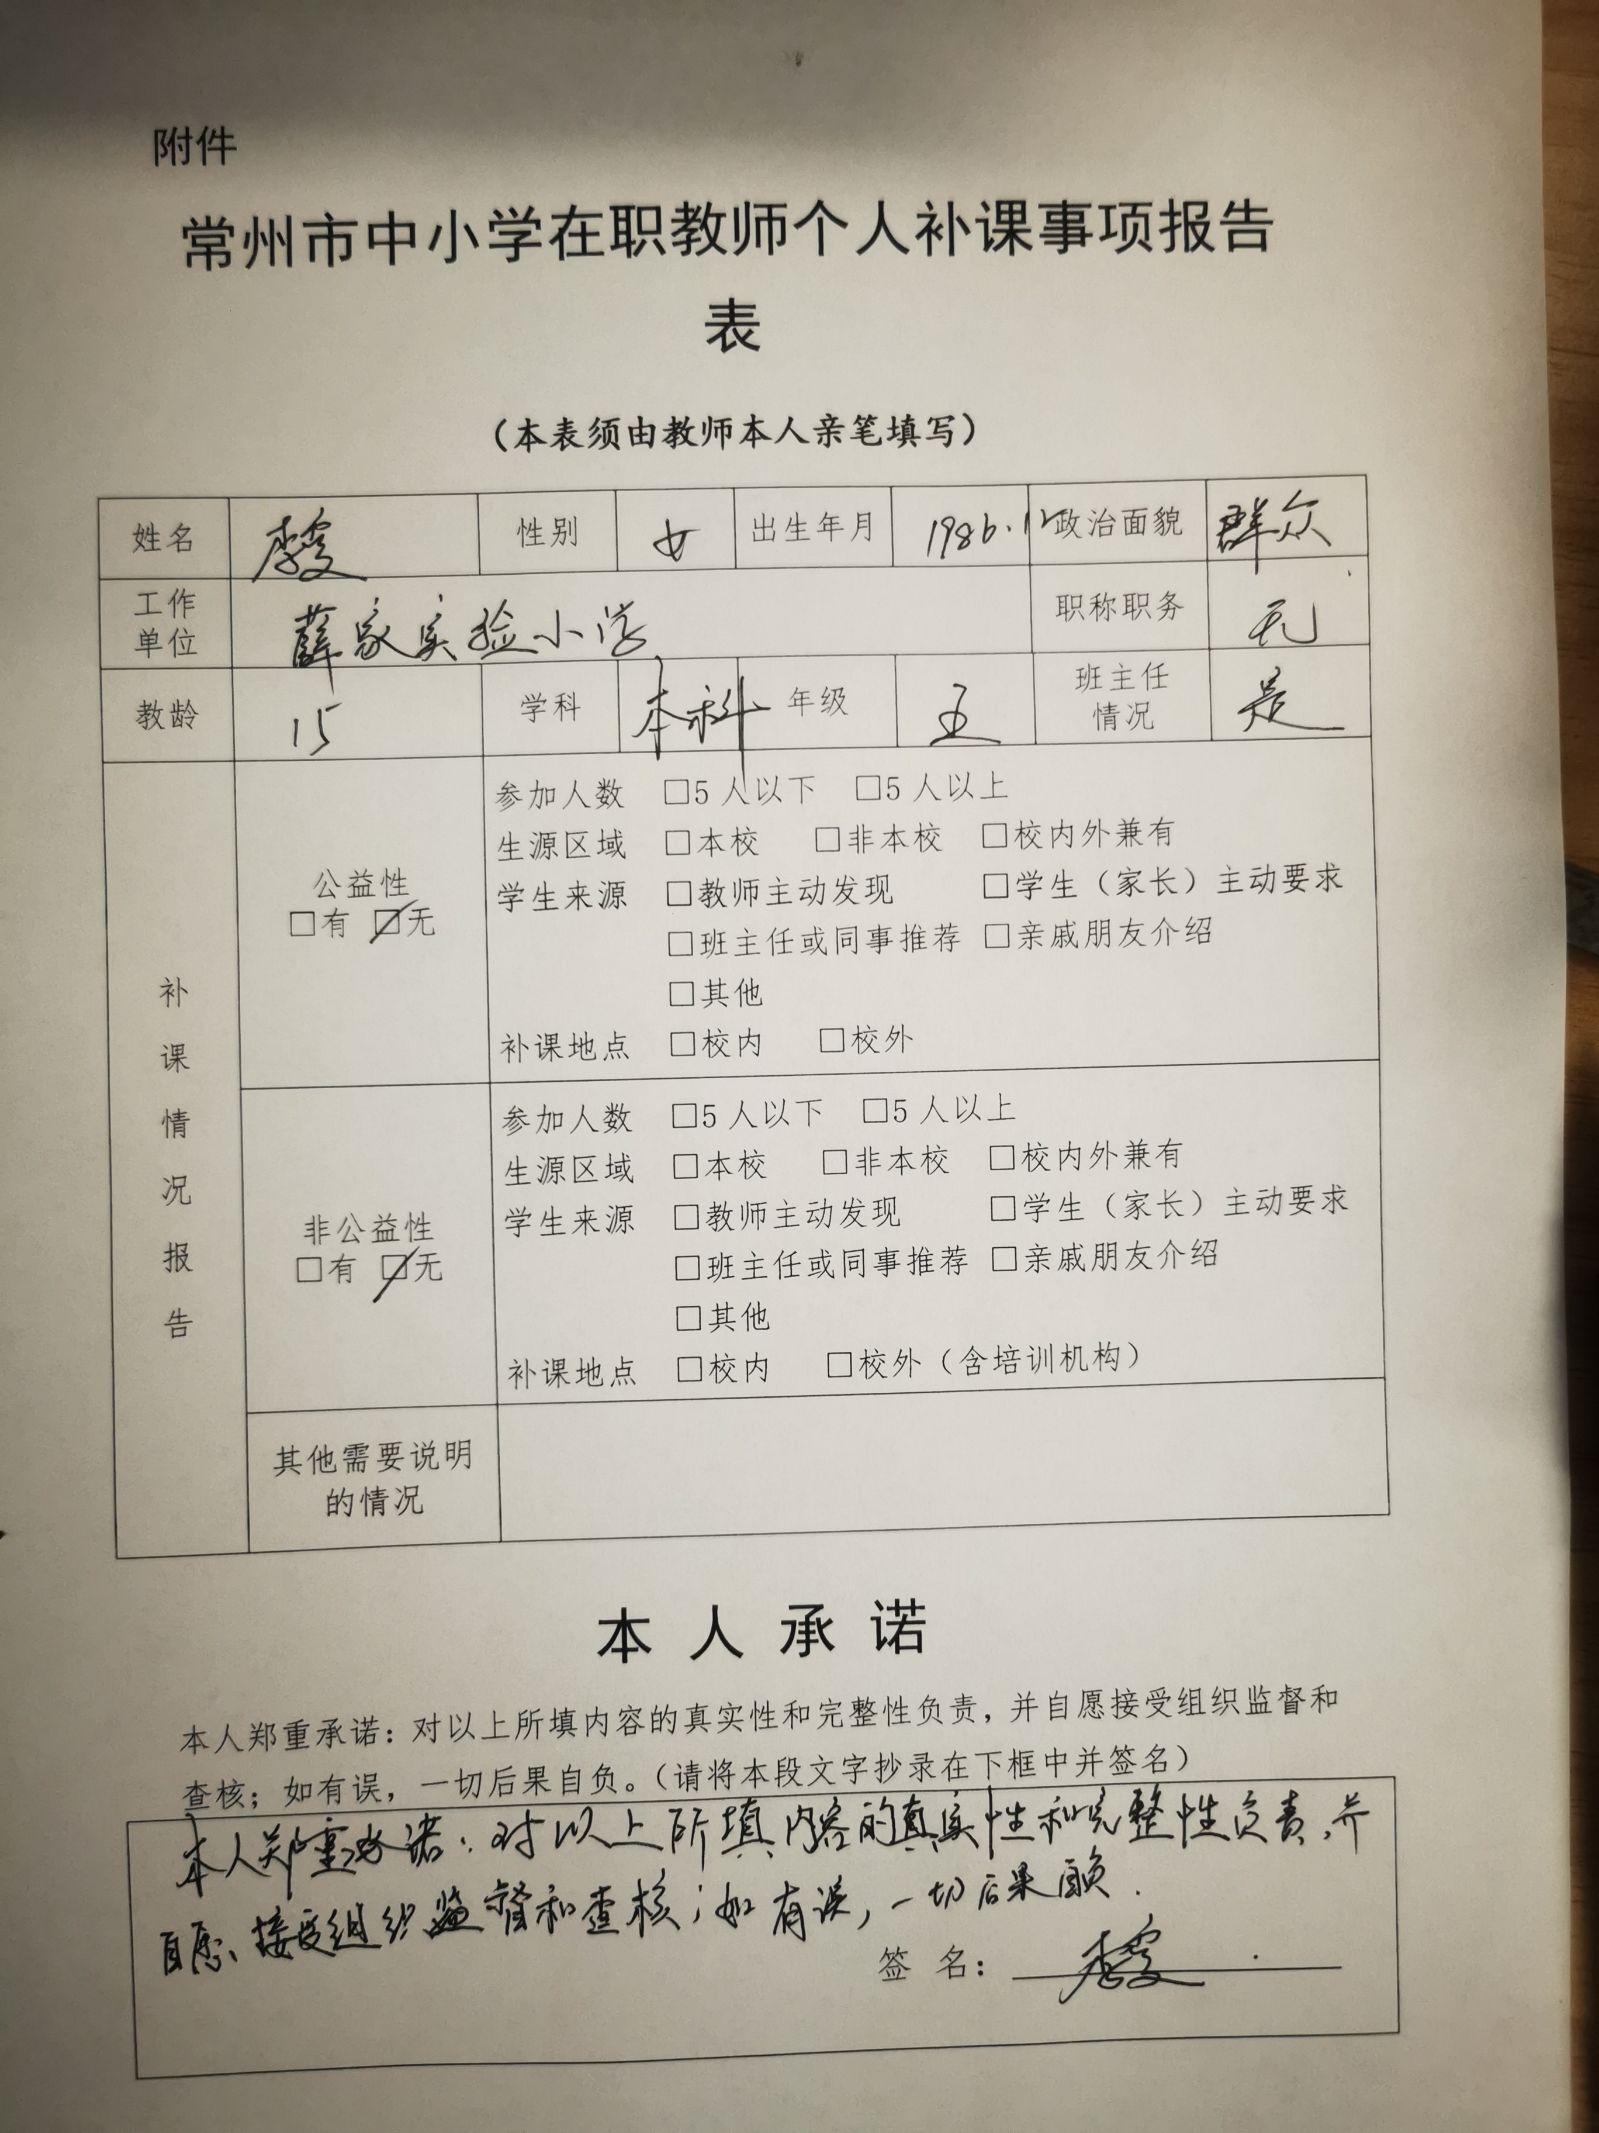 附件
常州市中小学在职教师个人补课事项报告
表
（本表须由教师本人亲笔填写）
姓名 性别 女 出生年月 1986.12 政治面貌 群众
工作单位 薛家实验小学 职称职务 无
教龄 15 学科 本科 年级 五 班主任情况 是
补课情况报告
公益性
□有 ☑无
参加人数 □5人以下 □5人以上
生源区域 □本校 □非本校 □校内外兼有
学生来源 □教师主动发现 □学生（家长）主动要求
□班主任或同事推荐 □亲戚朋友介绍
□其他
补课地点 □校内 □校外
非公益性
□有 ☑无
参加人数 □5人以下 □5人以上
生源区域 □本校 □非本校 □校内外兼有
学生来源 □教师主动发现 □学生（家长）主动要求
□班主任或同事推荐 □亲戚朋友介绍
□其他
补课地点 □校内 □校外（含培训机构）
其他需要说明
的情况
本人承诺
本人郑重承诺：对以上所填内容的真实性和完整性负责，并自愿接受组织监督和
查核；如有误，一切后果自负。（请将本段文字抄录在下框中并签名）
本人郑重承诺：对以上所填内容的真实性和完整性负责，并
自愿、接受组织监督和查核；如有误，一切后果自负．
签 名：